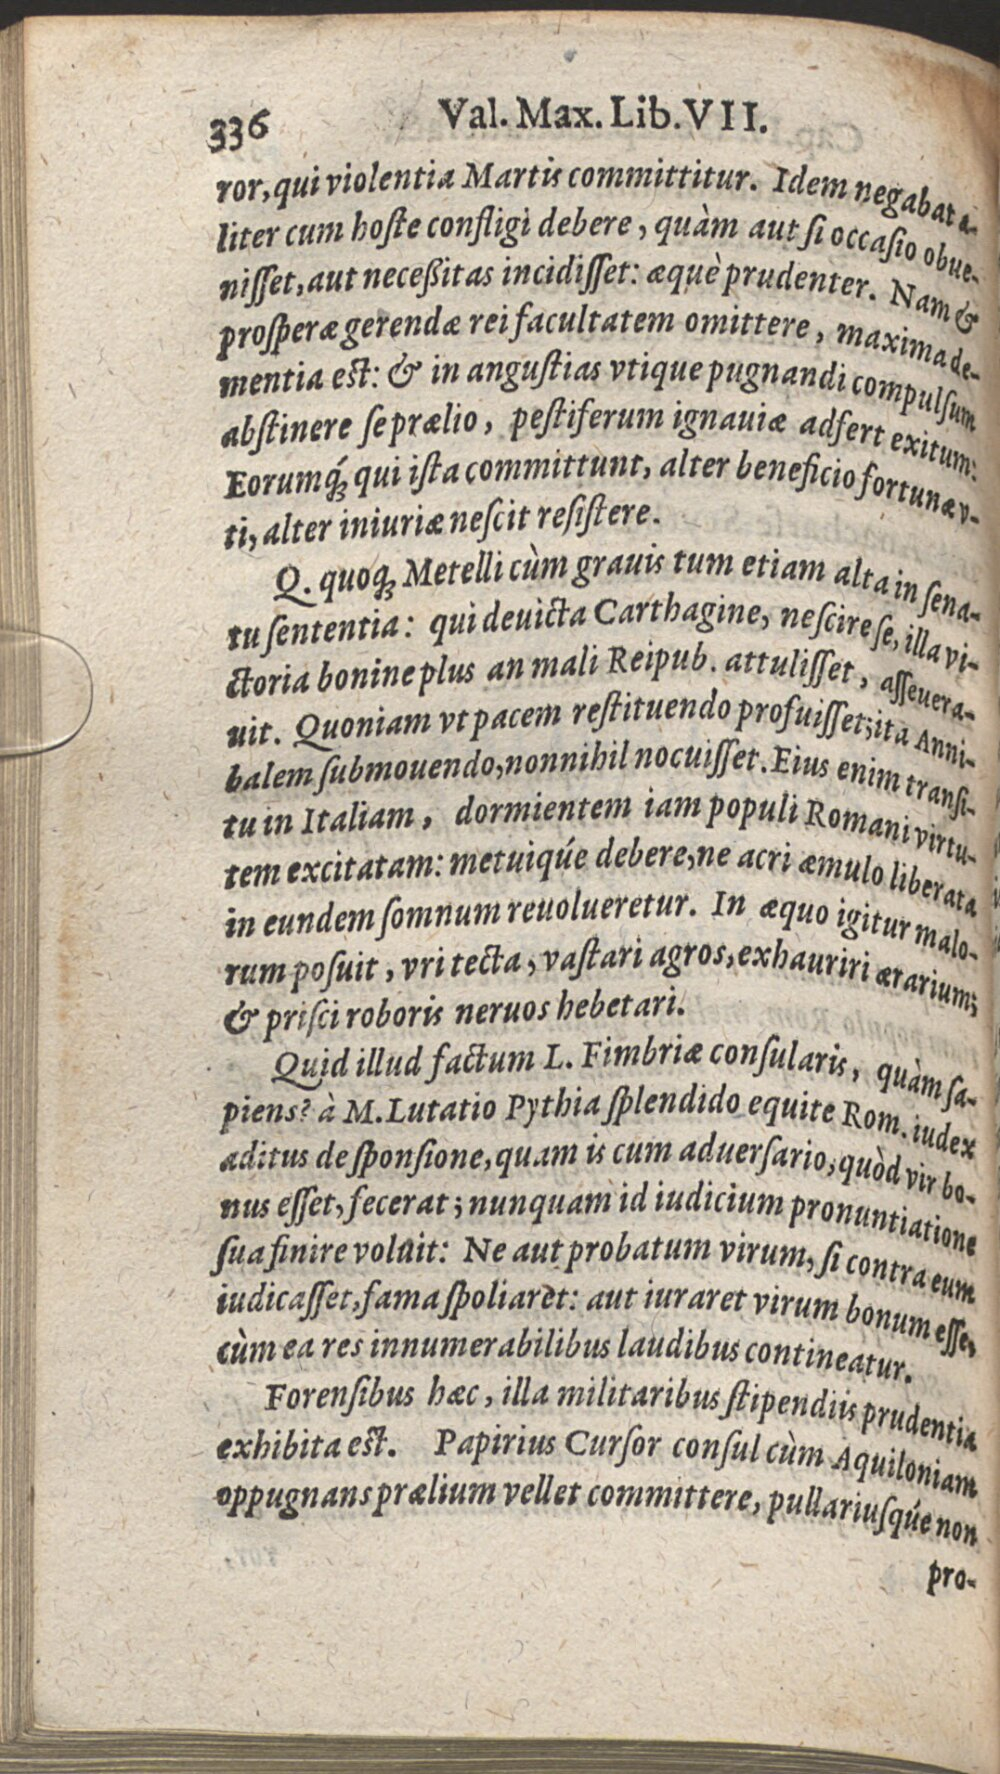 336 Val. Max. Lib. VII.
ror, qui violentia Martis committitur. Idem negabat a-
liter cum hoſte confligi debere, quàm aut ſi occaſio obue-
niſſet, aut neceßitas incidiſſet: æquè prudenter. Nam &
proſperæ gerendæ rei facultatem omittere, maxima de-
mentia eſt: & in anguſtias vtique pugnandi compulſum
abſtinere ſe prælio, peſtiferum ignauiæ adfert exitum:
Eorumq́; qui iſta committunt, alter beneficio fortunæ v-
ti, alter iniuriæ neſcit reſiſtere.
Q. quoq; Metelli cùm grauis tum etiam alta in ſena-
tu ſententia: qui deuicta Carthagine, neſcire ſe, illa vi-
ctoria bonine plus an mali Reipub. attuliſſet, aſſeuera-
uit. Quoniam vt pacem reſtituendo profuiſſet; ita Anni-
balem ſubmouendo, nonnihil nocuiſſet. Eius enim tranſi-
tu in Italiam, dormientem iam populi Romani virtu-
tem excitatam: metuiq́ue debere, ne acri æmulo liberata
in eundem ſomnum reuolueretur. In æquo igitur malo-
rum poſuit, vri tecta, vaſtari agros, exhauriri ærarium;
& priſci roboris neruos hebetari.
Quid illud factum L. Fimbriæ conſularis, quàm ſa-
piens? à M. Lutatio Pythia ſplendido equite Rom. iudex
aditus de ſponſione, quam is cum aduerſario, quòd vir bo-
nus eſſet, fecerat; nunquam id iudicium pronuntiatione
ſua finire voluit: Ne aut probatum virum, ſi contra eum
iudicaſſet, fama ſpoliaret: aut iuraret virum bonum eſſe,
cùm ea res innumerabilibus laudibus contineatur.
Forenſibus hæc, illa militaribus ſtipendiis prudentia
exhibita eſt. Papirius Curſor conſul cùm Aquiloniam
oppugnans prælium vellet committere, pullariuſq́ue non
pro-